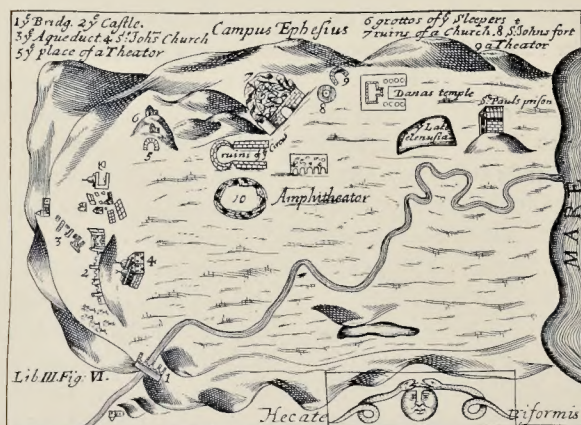 1 yᵉ Bridg. 2 yᵉ Castle.
3 yᵉ Aqueduct 4 Sᵗ John's Church
5 yᵉ place of a Theator
Campus Ephesius
6 grottos of yᵉ Sleepers &
7 ruins of a Church. 8 S. Johns fort
9 a Theator
7
9
8
Danas temple
Sᵗ Pauls prison
6
5
ruins of yᵉ Circus
yᵉ Lake
10
Amphitheator
MARE
3
3
4
2
1
Lib III. Fig. VI.
Hecate
triformis